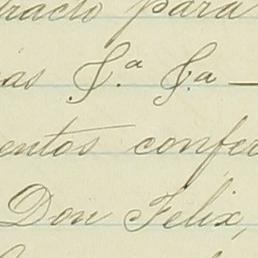 tracto para
as S.a S.a —
entos confer
Don Felix,